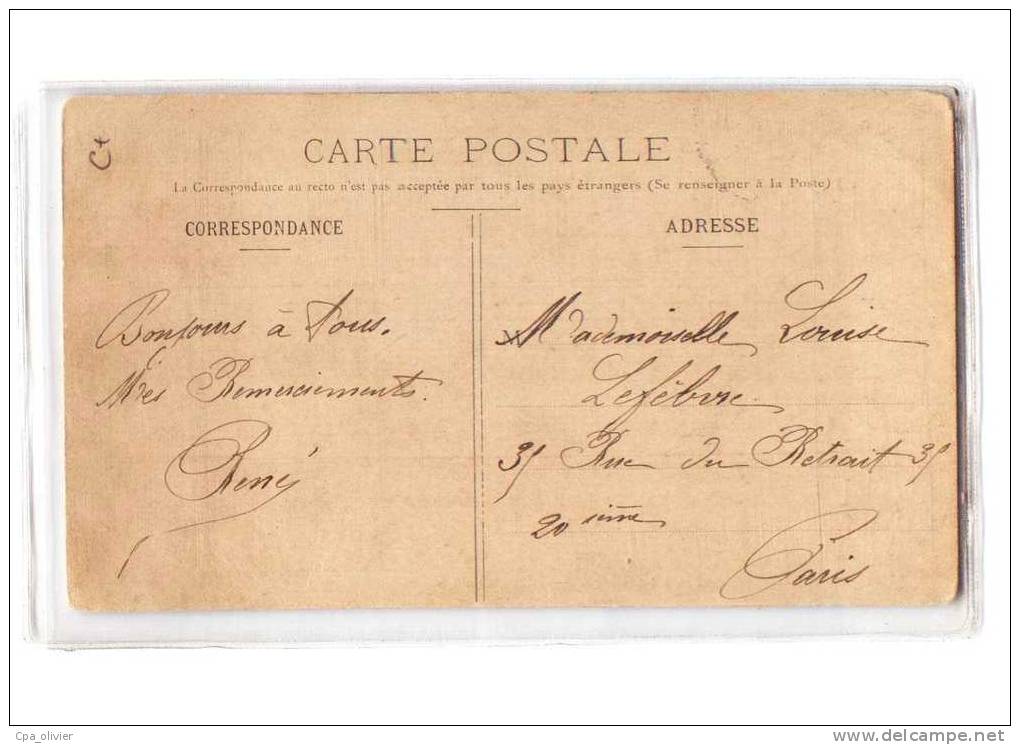 CARTE POSTALE
La Correspondance au recto n'est pas acceptée par tous les pays étrangers (Se renseigner à la Poste)
CORRESPONDANCE
Bonjours à Tous.
Mes Remerciements.
René
ADRESSE
Mademoiselle Louise
Lefèbvre
35 Rue du Retrait 35
20 ième
Paris
Cpa_olivier
www.delcampe.net